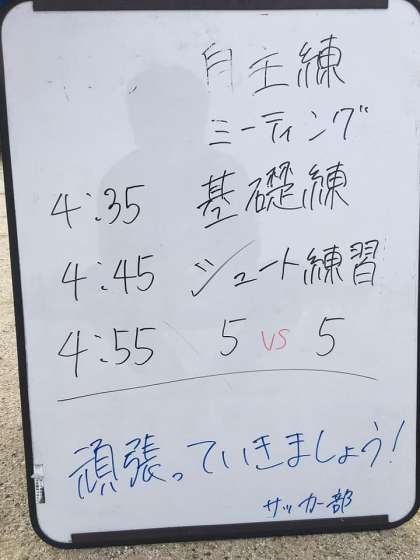 自主練
ミーティング
4:35 基礎練
4:45 シュート練習
4:55 5 vs 5
頑張っていきましょう!
サッカー部